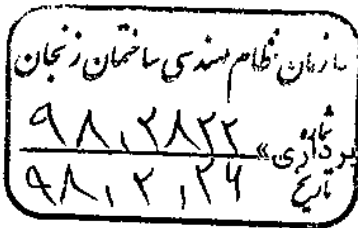 سازمان نظام مهندسی ساختمان زنجان
شماره ۹۸,۲۸۲۲
تاریخ ۹۸,۲,۲۶